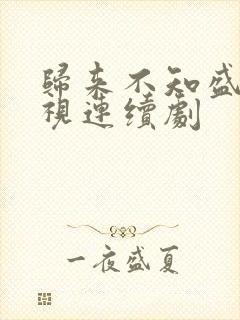 歸來不知盛
視連續劇
一夜盛夏